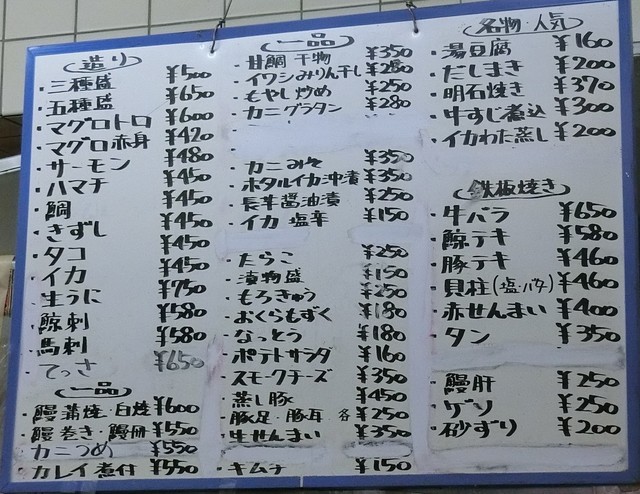 造り
・三種盛 ¥500
・五種盛 ¥650
・マグロトロ ¥600
・マグロ赤身 ¥420
・サーモン ¥480
・ハマチ ¥450
・鯛 ¥450
・きずし ¥450
・タコ ¥450
・イカ ¥450
・生うに ¥750
・鯨刺 ¥580
・馬刺 ¥580
・てっさ ¥650
一品
・鰻蒲焼・白焼 ¥600
・鰻巻き・鰻丼 ¥550
・カニつめ ¥550
・カレイ煮付 ¥550
一品
・甘鯛 干物 ¥350
・イワシみりん干し ¥280
・もやし炒め ¥250
・カニグラタン ¥280
・カニみそ ¥350
・ホタルイカ沖漬 ¥350
・長芋醤油漬 ¥250
・イカ 塩辛 ¥150
・たらこ ¥250
・漬物盛 ¥150
・もろきゅう ¥250
・おくらもずく ¥180
・なっとう ¥180
・ポテトサラダ ¥160
・スモークチーズ ¥350
・蒸し豚 ¥450
・豚足・豚耳 各¥250
・生せんまい ¥350
・キムチ ¥150
名物・人気
・湯豆腐 ¥160
・だしまき ¥200
・明石焼き ¥370
・牛すじ煮込 ¥300
・イカわた蒸し ¥200
鉄板焼き
・牛バラ ¥650
・鯨テキ ¥580
・豚テキ ¥460
・貝柱(塩・バタ) ¥460
・赤せんまい ¥400
・タン ¥350
・鰻肝 ¥250
・ゲソ ¥250
・砂ずり ¥200